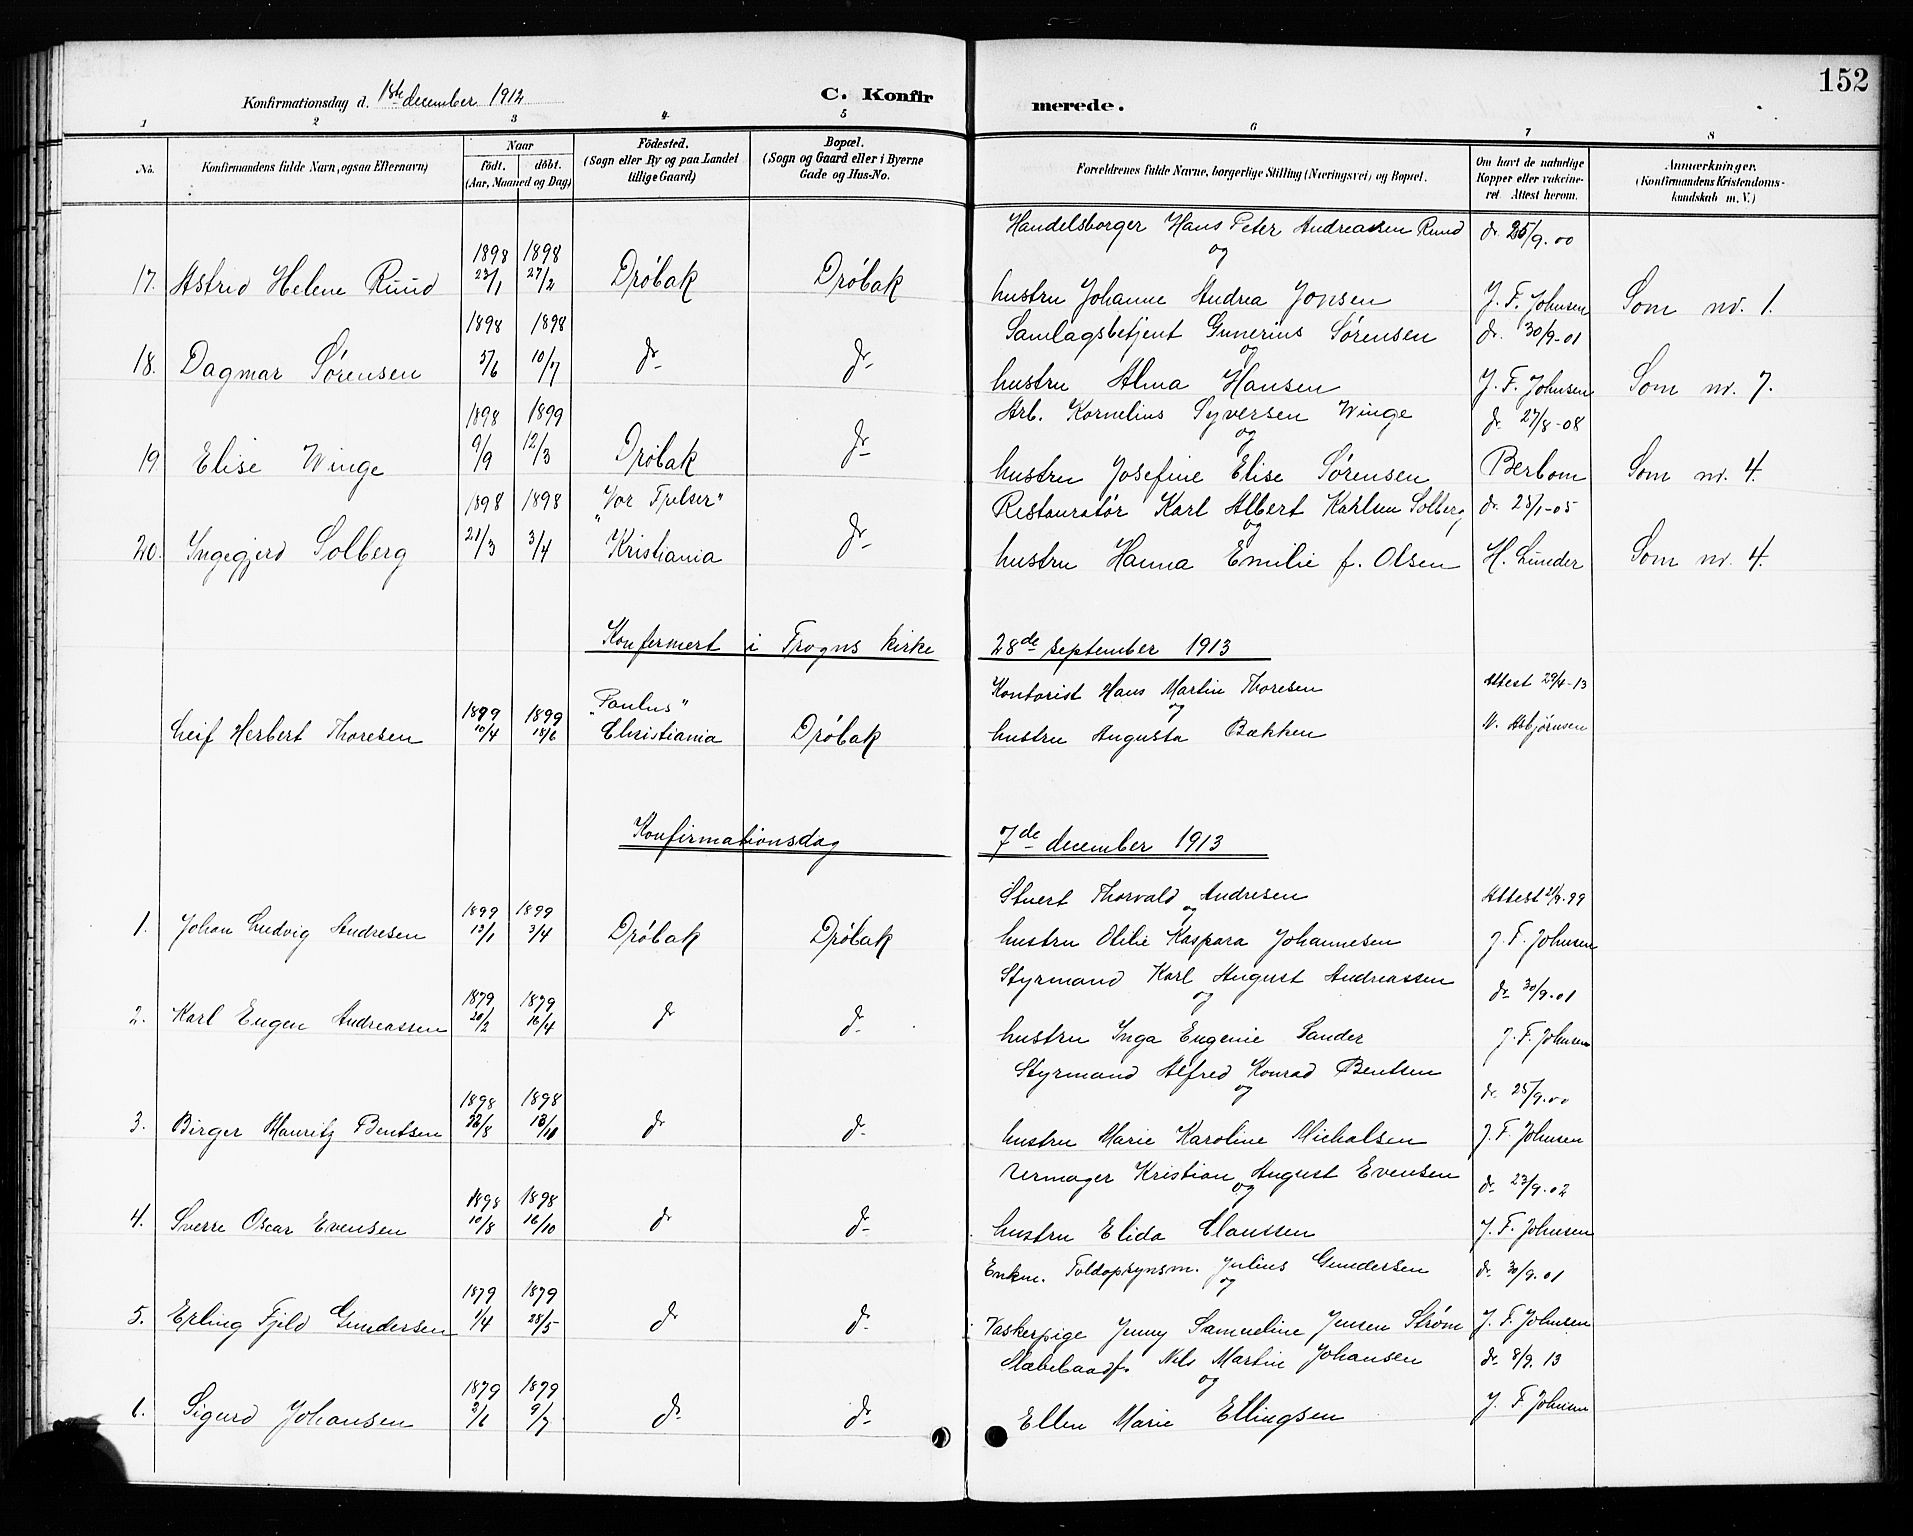 152
Konfirmationsdag d. 1ste december 1912
C. Konfirmerede.
1 2 3 4 5 6 7 8
No. Konfirmandens fulde Navn, ogsaa Efternavn) Naar födt. döbt. (Aar, Maaned og Dag) Födested. (Sogn eller By og paa Landet tillige Gaard) Bopæl. (Sogn og Gaard eller i Byerne Gade og Hus-No. Forældrenes fulde Navne, borgerlige Stilling (Næringsvei) og Bopæl. Om havt de naturlige Kopper eller vakcineret Attest herom. Anmærkninger. (Konfirmandens Kristendomskundskab m. V.)
Handelsborger Hans Peter Andreassen Ruud dr 25/9.00
1898 1898 og
17. Astrid Helene Ruud 23/1 27/2 Drøbak Drøbak hustru Johanne Andrea Jonsen J. F. Johnsen Som nr. 1.
1898 1898 Samlagsbetjent Gunerius Sørensen dr. 30/9-01
og
18. Dagmar Sørensen 5/6 10/7 dr dr hustru Alma Hansen J. F. Johnsen Som nr. 7.
1898 1899 Arb. Kornelius Syversen Winge dr 27/8-08
og
19 Elise Winge 9/9 12/3 Drøbak dr hustru Josefine Elise Sørensen Berbom Som nr. 4.
1898 1898 "Vor Frelser" Restauratør Karl Albert Karlsen Solberg dr. 25/1-05
og
20. Ingegjerd Solberg 21/3 3/4 Kristiania dr hustru Hanna Emilie f. Olsen H. Lunder Som nr. 4.
Konfermert i Frogns kirke 28de september 1913
"Paulus" Kontorist Hans Martin Thoresen Attest 29/4-13
1899 1899 og
Leif Herbert Thoresen 10/4 18/6 Christiania Drøbak hustru Augusta Bækken N. Asbjørnsen
Konfirmationsdag 7de december 1913
Stuert Thorvald Andresen Attest 21/9-99
1899 1899 og
1. Johan Ludvig Andresen 13/1 3/4 Drøbak Drøbak hustru Otilie Kaspara Johannesen J. F. Johnsen
Styrmand Karl August Andreassen dr 30/9-01
1879 1879 og
2. Karl Eugen Andreassen 20/2 16/4 dr dr. hustru Inga Eugenie Sander J. F. Johnsen
Styrmand Alfred Konrad Bentsen dr. 25/9.00
1898 1898 og
3. Birger Mauritz Bentsen 22/8 13/10 dr dr. hustru Marie Karoline Micholsen J. F. Johnsen
Urmager Kristian August Evensen dr 23/9-02
1898 1898 og
4. Sverre Oscar Evensen 10/8 16/10 dr dr hustru Elida Claussen J. F. Johnsen
Enkm. Toldopsynsm. Julius Gundersen dr. 30/9.01
1879 1879 og
5. Erling Fjeld Gundersen 1/4 28/5 dr dr Vaskerpige Jenny Samueline Jensen Strøm J. F. Johnsen
Nils Martin Johansen dr. 8/9. 13
1879 1879 og
6. Sigurd Johansen 2/6 9/7 dr. dr Ellen Marie Ellingsen J. F Johnsen